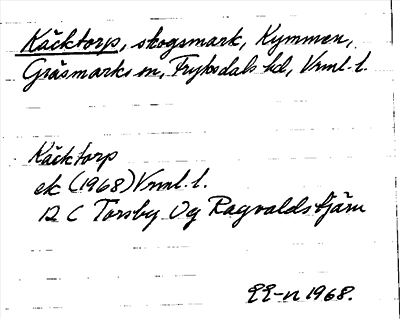 Käcktorp, skogsmark, Kymmen,
Gräsmarks sn, Fryksdals hd, Vrml. l.
Käcktorp
ek (1968) Vrml. l.
12 C Torsby Og Ragvaldstjärn
1968.